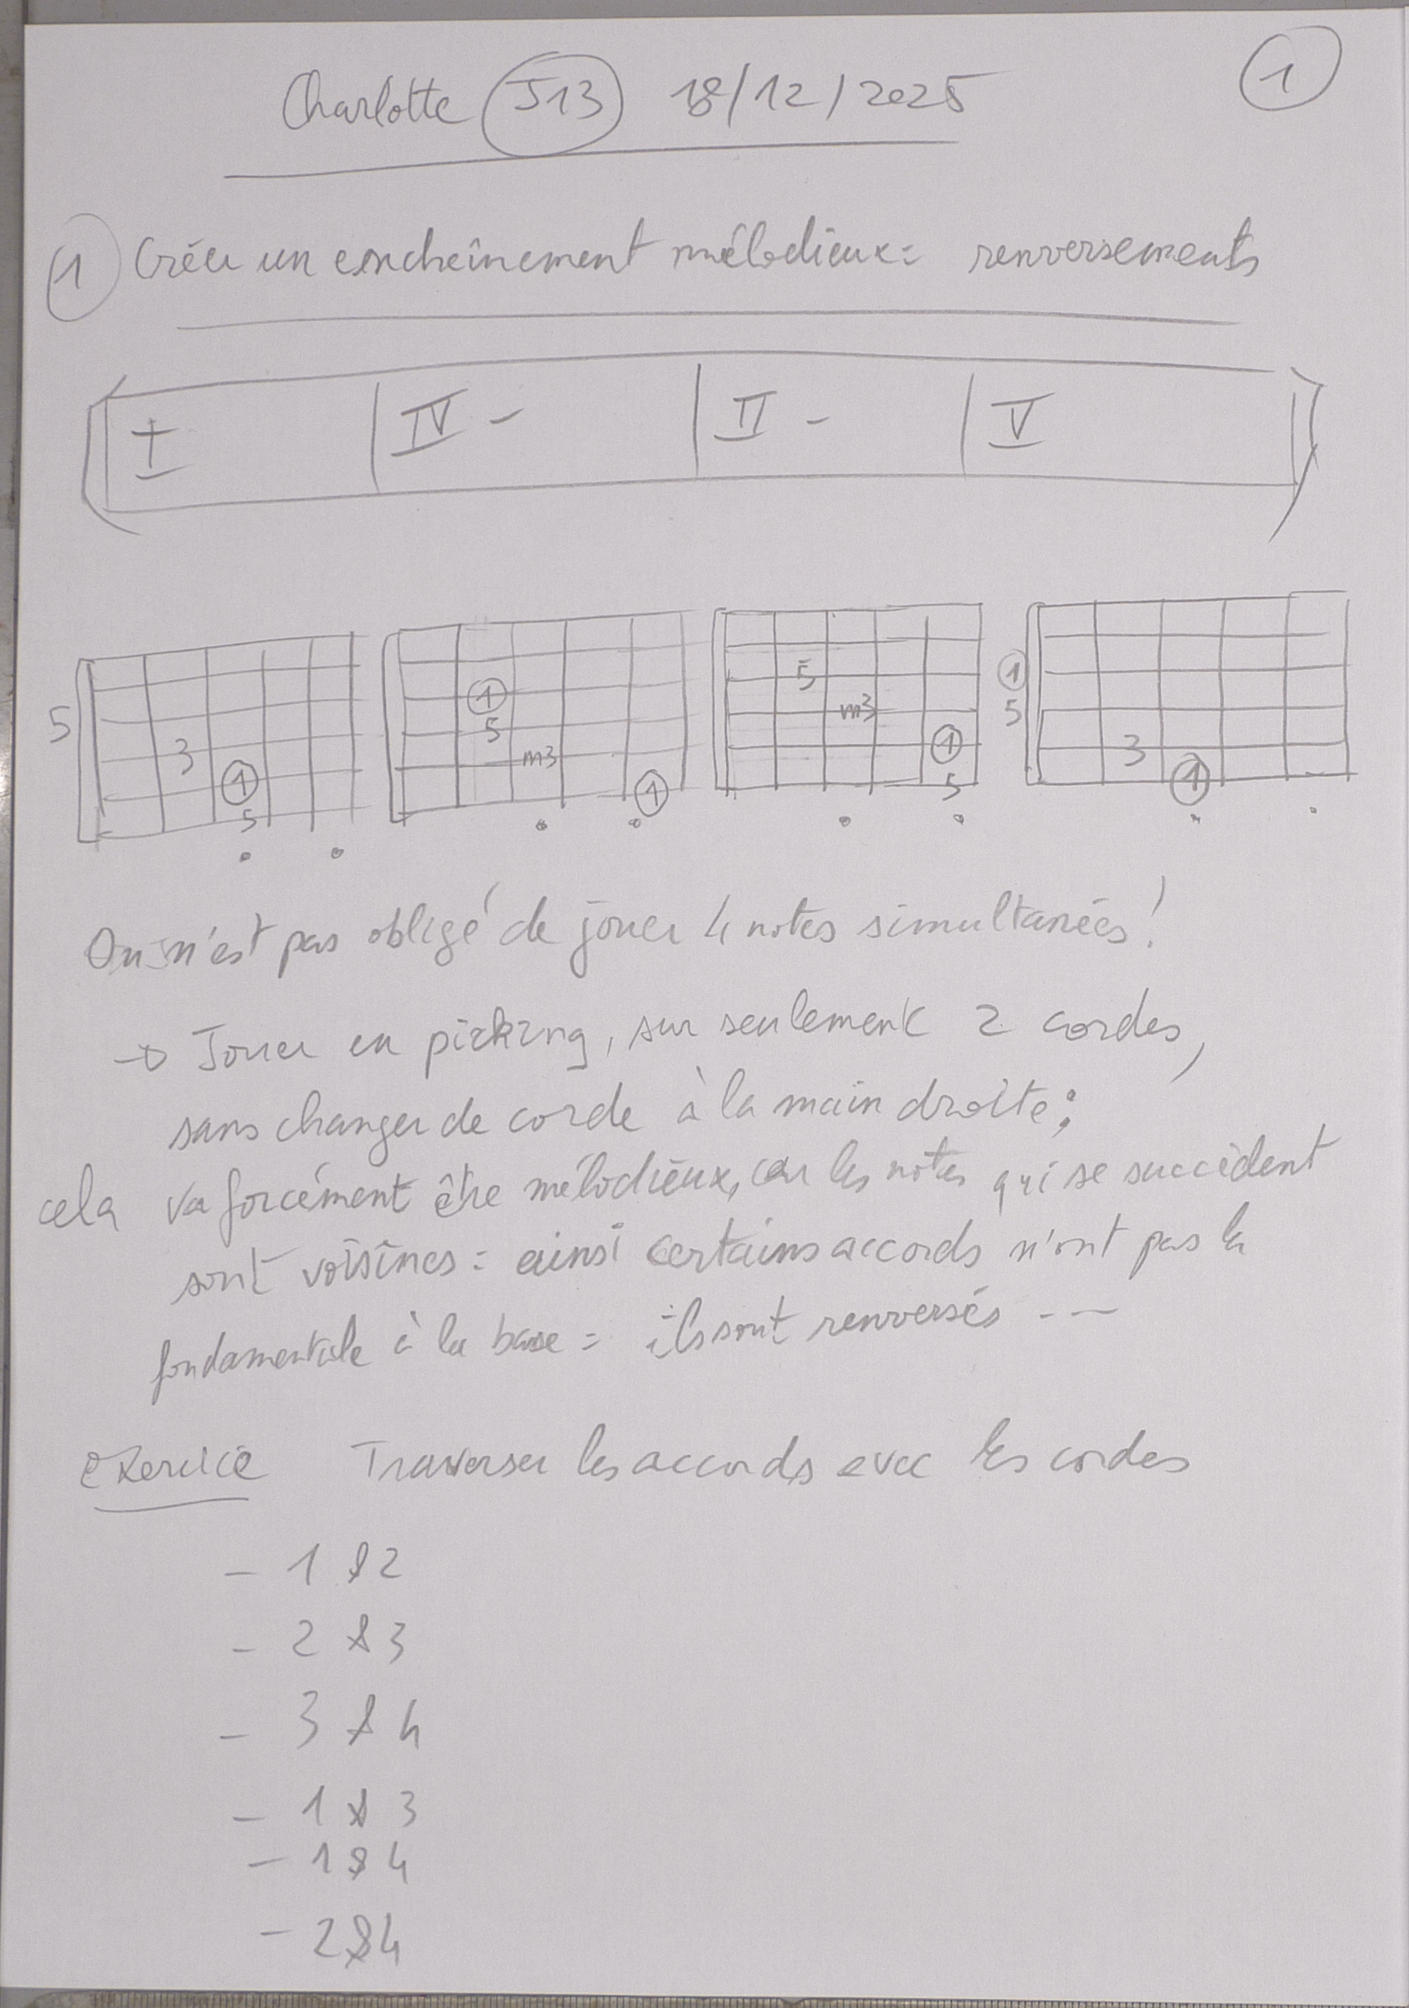 Charlotte J13 18/12/2025
1
1 Créer un encheînement mélodieux = renversements
I IV - II - V
5 3 1 5
1 5 m3 1
5 m3 1 5
1 5 3 1
On n'est pas obligé de jouer 4 notes simultanées !
→ Jouer en picking, sur seulement 2 cordes,
sans changer de corde à la main droite ;
cela va forcément être mélodieux, car les notes qui se succèdent
sont voisines = ainsi certains accords n'ont pas la
fondamentale à la base = ils sont renversés ---
exercice Traverser les accords avec les cordes
- 1 & 2
- 2 & 3
- 3 & 4
- 1 & 3
- 1 & 4
- 2 & 4